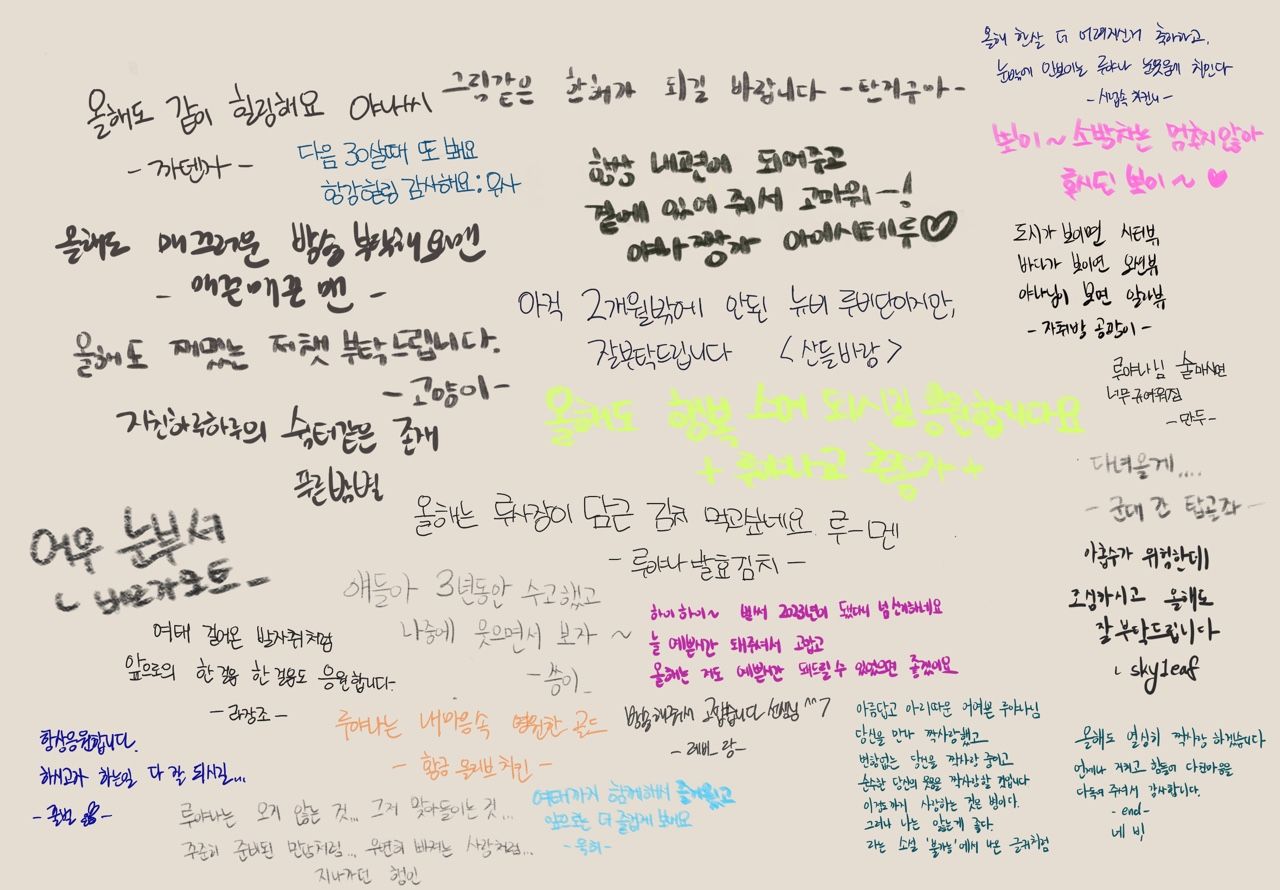 올해도 같이 힐링해요 야나씨
- 까덴자 -
그림같은 한해가 되길 바랍니다 - 탄지큐아 -
다음 30살때 또 봬요
항강힐링 감사해요: 유사
올해도 매끄러운 방송 부탁해요맨
- 매끈매끈 맨 -
올해도 재밌는 저챗 부탁드립니다.
- 고양이 -
지친하루하루의 쉼터같은 존재
푸른밤별
어우 눈부셔
항상 내편에 되어주고
곁에 있어 줘서 고마워 ㅡ!
야나 짱가 아이시테루♡
아직 2개월밖에 안된 뉴비 루비단이지만,
잘부탁드립니다 < 산들바람 >
올해도 행복 스며 되시길 응원합니다요
올해는 류사장이 담근 김치 먹고싶네요 루-멘
- 루야나 발효김치 -
올해 한살 더 어려지신거 축하하고,
눈밖에 안보이는 루야나 눈웃음에 치인다
보이~ 소박차는 멈추지않아
혹시된 보이~ ♥
도시가 보이면 시티뷰
바다가 보이면 오션뷰
야나님이 보면 알라뷰
- 자취방 곰팡이 -
루야나님 술마시면
너무귀여워짐
- 만두 -
다녀올게....
- 군대 간 탑골좌 -
야흡수가 위험한데
조심하시고 올해도
잘 부탁드립니다
skyleaf
얘들아 3년동안 수고했고
나중에 웃으면서 보자 ~
- 쏭이 -
여태 걸어온 발자취처럼
앞으로의 한 걸음 한 걸음도 응원합니다.
- 라강조 -
하이하이~ 벌써 2023년이 됐다니 넘 신기하네요
늘 예쁜시간 돼주셔서 고맙고
올해는 저도 예쁜시간 돼드릴 수 있었으면 좋겠어요
루야나는 내마음속 영원한 골드
- 황금 올리브 치킨 -
방송해줘서 고맙습니다 선생님 ^^7
- 레비 랑 -
항상응원합니다.
하시고자 하는일 다 잘 되시길...
- 꿀벌 -
루야나는 오지 않는 것... 그저 맞다들이는 것...
꾸준히 준비된 만남처럼... 우연히 빠져든 사랑처럼...
지나가던 행인
여태까지 함께해서 즐거웠고
앞으로는 더 즐겁게 보내요
- 욱희 -
아름답고 아리따운 어여쁜 루야나님
당신을 만나 짝사랑했고
변함없는 당신을 짝사랑 중이고
순수한 당신의 웃음을 짝사랑할 것입니다
이것까지 사랑하는 것은 병이다.
그러나 나는 앓는게 좋다.
라는 소설 '불가능'에서 나온 글귀처럼
올해도 열심히 짝사랑 하겠습니다
언제나 지치고 힘들어 다친마음을
다독여 주셔서 감사합니다.
- end -
네 빛